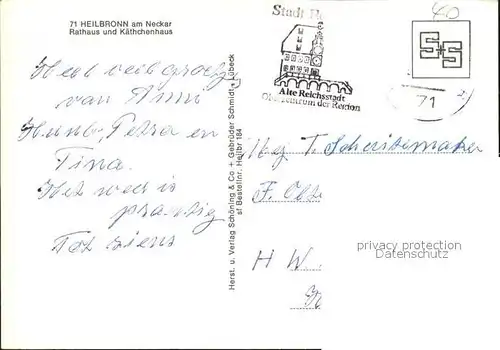 71 HEILBRONN am Neckar
Rathaus und Käthchenhaus
Heel veel groetjes
van Anno
Huub, Petra en
Tina.
Het weer is
prachtig
Tot ziens
Herst. u. Verlag Schöning & Co + Gebrüder Schmidt, Lübeck
Bestellnr. Heilbr 184
Stadt
Alte Reichsstadt
Oberzentrum der Region
40
S+S
71
T. Scheitemaker
F.
H W
privacy protection
data (GDPR)